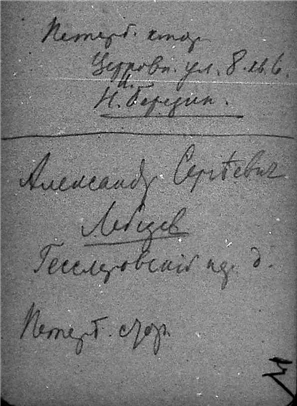 Петерб. стор.
Церковн. ул. 8. кв. 6.
Н. Березин.
Александръ Сергѣевич
Лебедев
Гесслеровскій пер. д.
Петерб. стор.